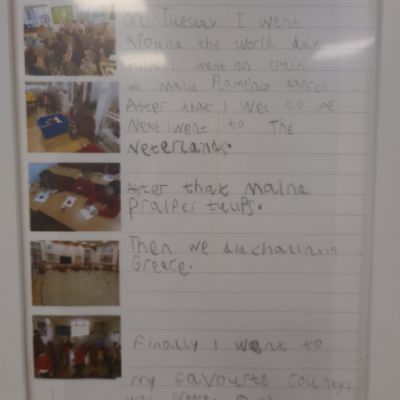 on Tuesday I went
around the world day
I went on spain
we maind Flamenco
After that I wet to UAE
Next I went to The
Neterlands.
After that maind
praIper tuups.
Then we did
Greece.
Finally I went to
my favourite
was Greece